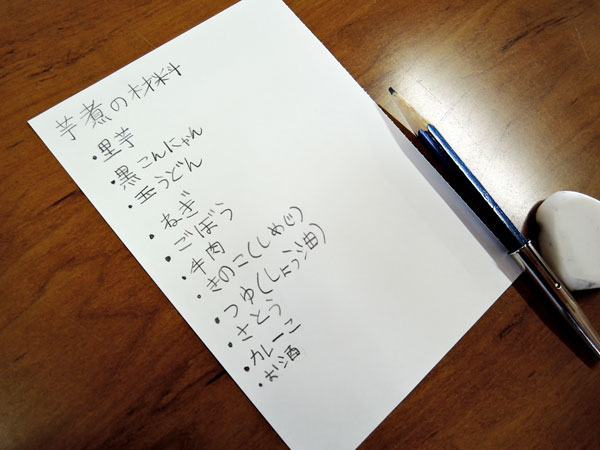 芋煮の材料
・里芋
・黒こんにゃん
・玉うどん
・ねぎ
・ごぼう
・牛肉
・きのこ(しめじ)
・つゆ(しょう油)
・さとう
・カレーこ
・お酒